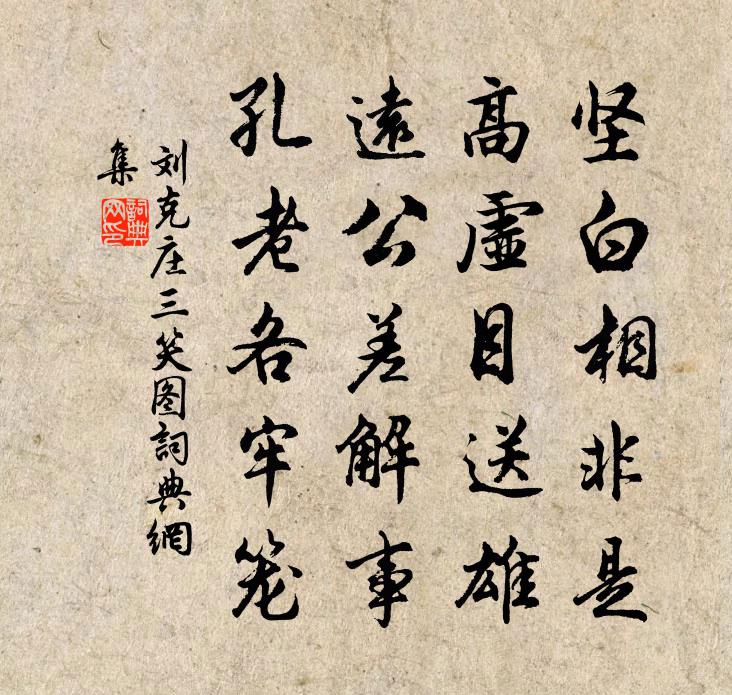 坚白相非是
高虚目送雄
遠公差解事
孔老各牢笼
刘克庄三笑图詞典網
集
詞典网印